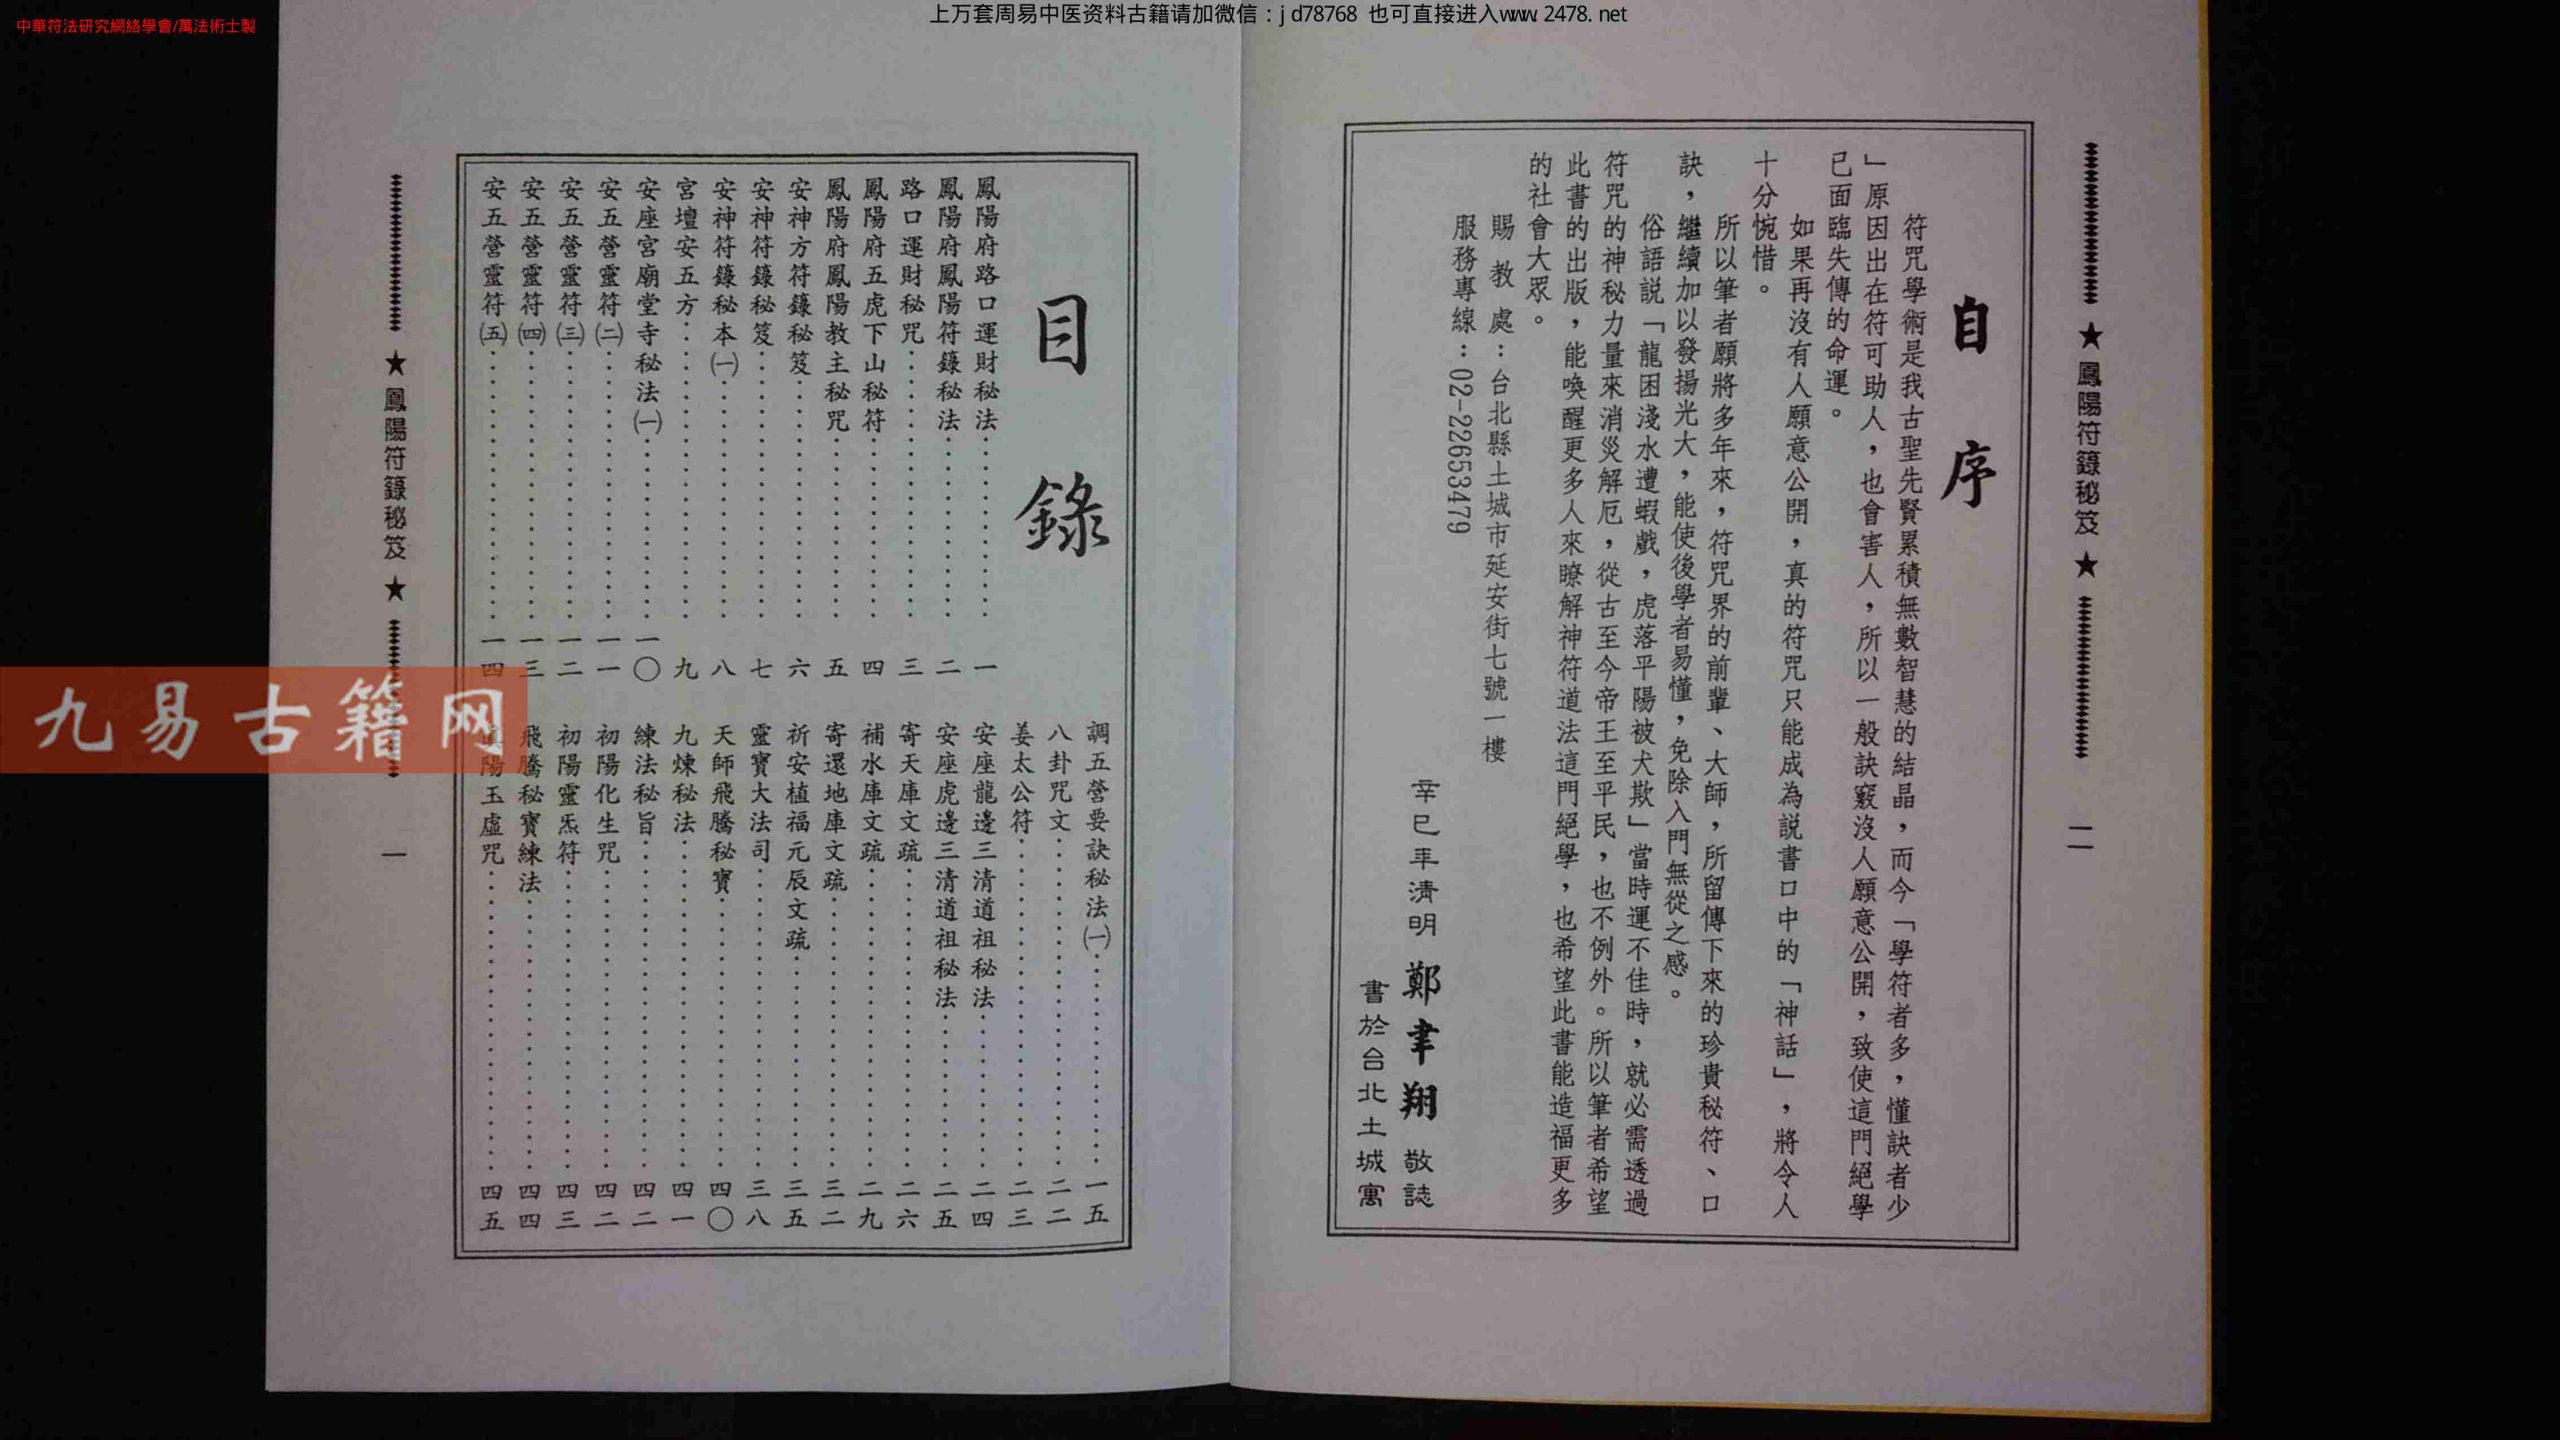 中華符法研究網絡學會/萬法術士製
上万套周易中医资料古籍请加微信：jd78768 也可直接进入www.2478.net
★鳳陽符籙秘笈★ 二
自序
符咒學術是我古聖先賢累積無數智慧的結晶，而今「學符者多，懂訣者少
」原因出在符可助人，也會害人，所以一般訣竅沒人願意公開，致使這門絕學
已面臨失傳的命運。
如果再沒有人願意公開，真的符咒只能成為説書口中的「神話」，將令人
十分惋惜。
所以筆者願將多年來，符咒界的前輩、大師，所留傳下來的珍貴秘符、口
訣，繼續加以發揚光大，能使後學者易懂，免除入門無從之感。
俗語説「龍困淺水遭蝦戲，虎落平陽被犬欺」當時運不佳時，就必需透過
符咒的神秘力量來消災解厄，從古至今帝王至平民，也不例外。所以筆者希望
此書的出版，能喚醒更多人來瞭解神符道法這門絕學，也希望此書能造福更多
的社會大眾。
賜教處：台北縣土城市延安街七號一樓
服務專線：02-22653479
辛巳年清明 鄭聿翔 敬誌
書於台北土城寓
目錄
鳳陽府路口運財秘法⋯⋯一
鳳陽府鳳陽符籙秘法⋯⋯二
路口運財秘咒⋯⋯三
鳳陽府五虎下山秘符⋯⋯四
鳳陽府鳳陽教主秘咒⋯⋯五
安神方符籙秘笈⋯⋯六
安神符籙秘笈⋯⋯七
安神符籙秘本㈠⋯⋯八
宮壇安五方⋯⋯九
安座宮廟堂寺秘法㈠⋯⋯一〇
安五營靈符㈡⋯⋯一一
安五營靈符㈢⋯⋯一二
安五營靈符㈣⋯⋯一三
安五營靈符㈤⋯⋯一四
調五營要訣秘法㈠⋯⋯一五
八卦咒文⋯⋯二二
姜太公符⋯⋯二三
安座龍邊三清道祖秘法⋯⋯二四
安座虎邊三清道祖秘法⋯⋯二五
寄天庫文疏⋯⋯二六
補水庫文疏⋯⋯二九
寄還地庫文疏⋯⋯三二
祈安植福元辰文疏⋯⋯三五
靈寶大法司⋯⋯三八
天師飛騰秘寶⋯⋯四〇
九煉秘法⋯⋯四一
練法秘旨⋯⋯四二
初陽化生咒⋯⋯四二
初陽靈炁符⋯⋯四三
飛騰秘寶練法⋯⋯四四
陽玉虛咒⋯⋯四五
★鳳陽符籙秘笈★ 一
九易古籍网